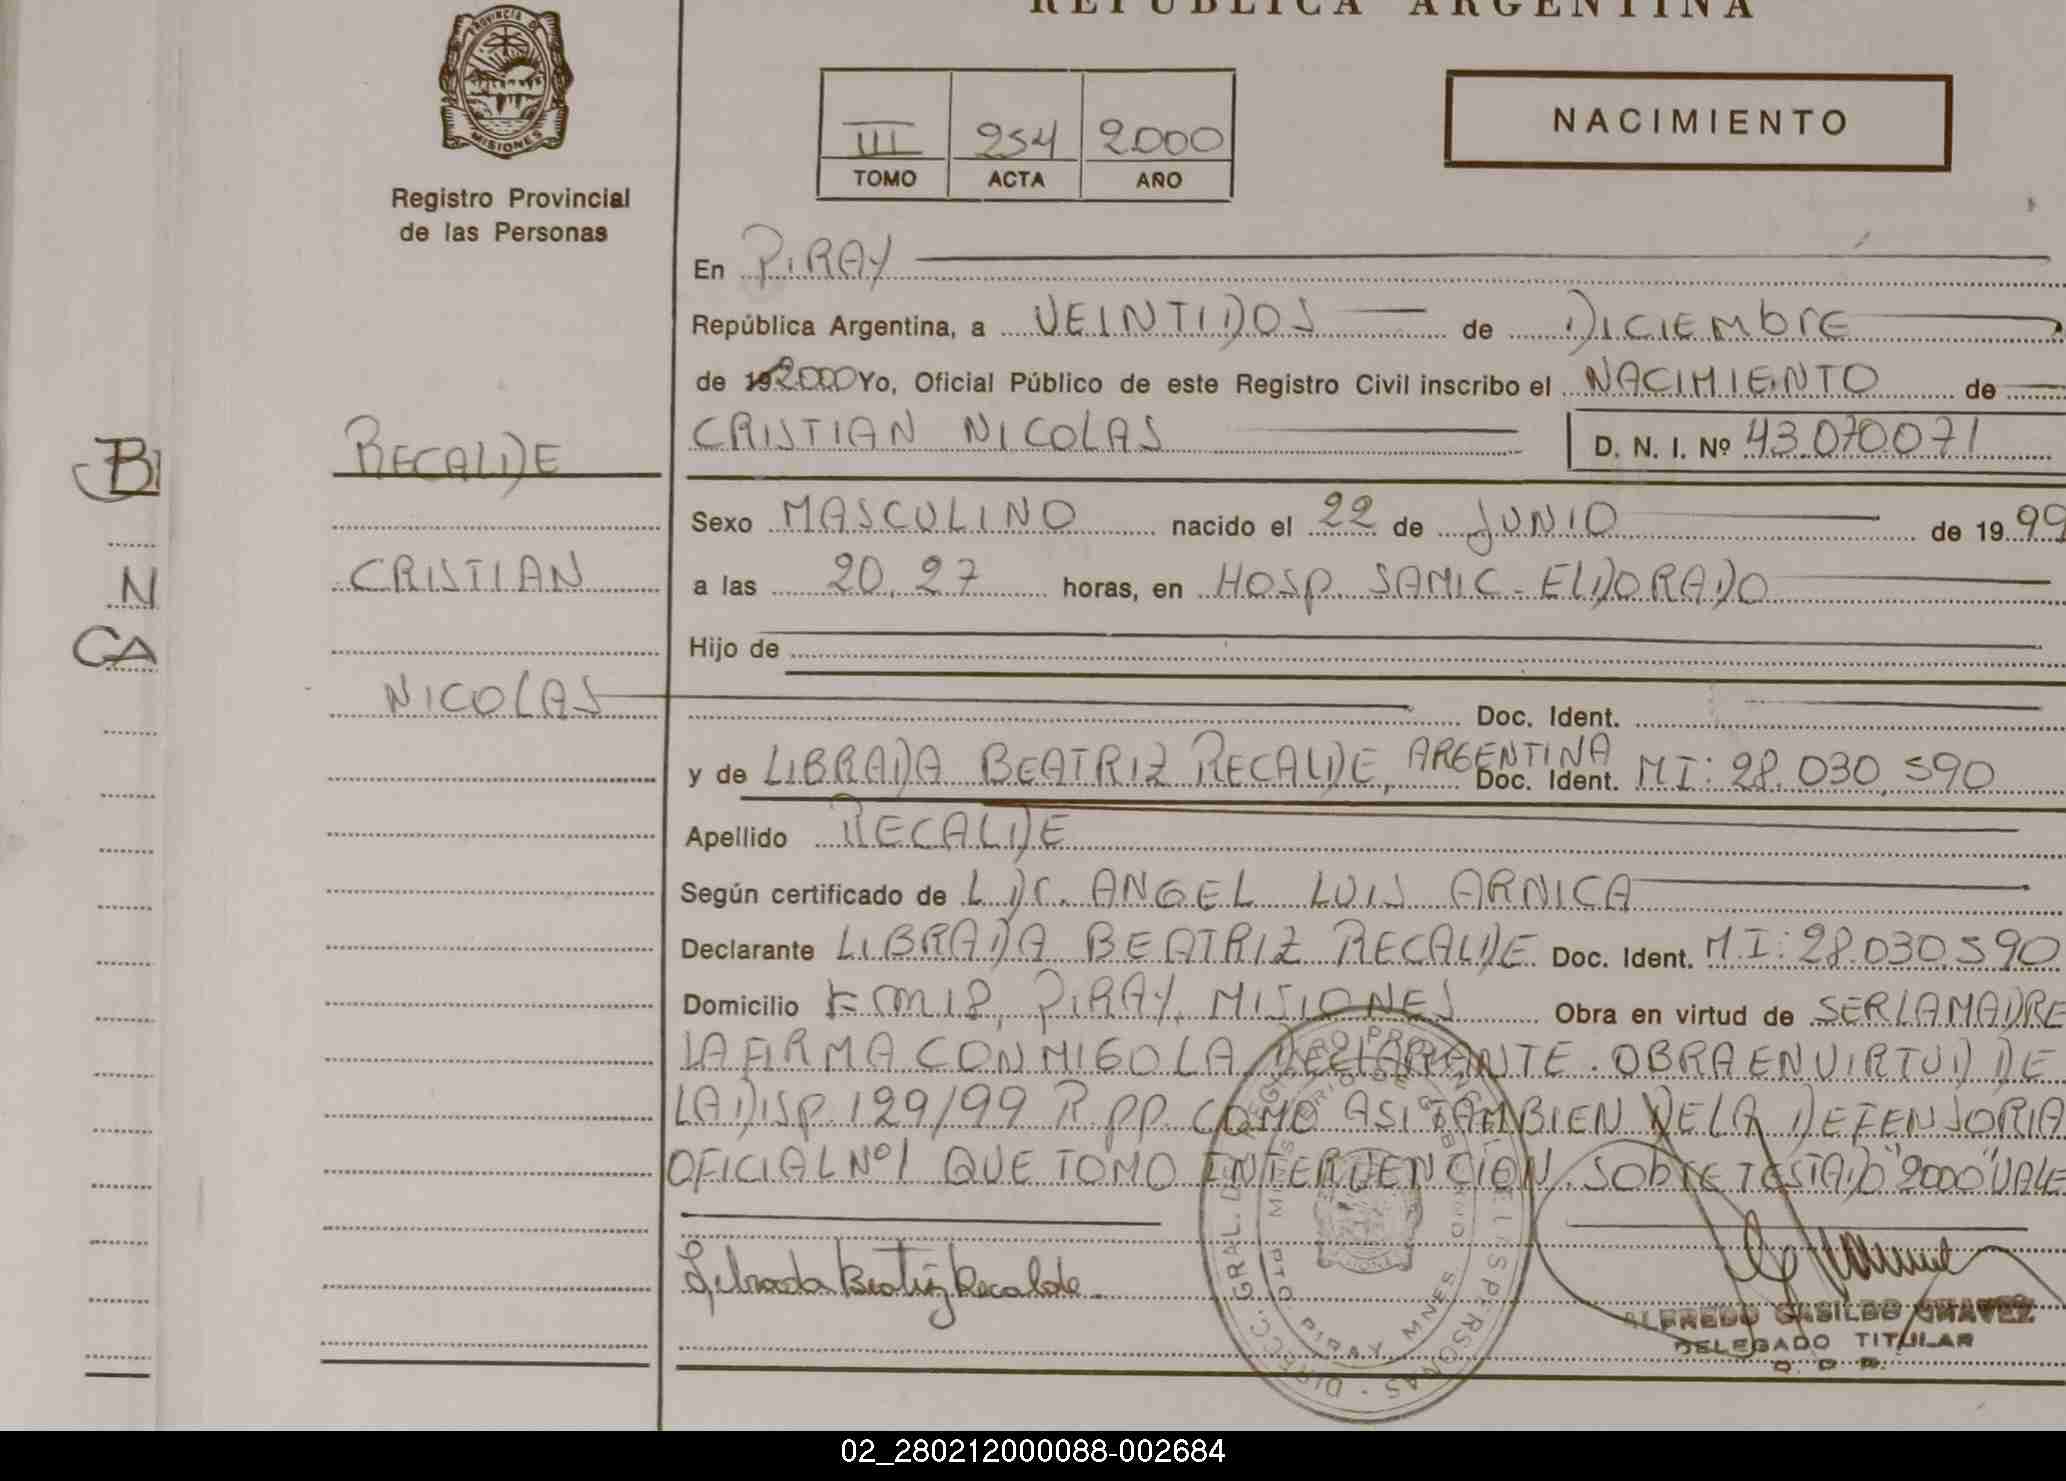 REPUBLICA ARGENTINA
PROVINCIA DE
MISIONES
Registro Provincial
de las Personas
III 254 2000
TOMO ACTA AÑO
NACIMIENTO
En PIRAY
República Argentina, a VEINTIDOS de DICIEMBRE
de 19 2000 Yo, Oficial Público de este Registro Civil inscribo el NACIMIENTO de
RECALDE CRISTIAN NICOLAS D. N. I. Nº 43.070.071
Sexo MASCULINO nacido el 22 de JUNIO de 19 99
CRISTIAN a las 20,27 horas, en HOSP. SAMIC - ELDORADO
Hijo de
NICOLAS Doc. Ident.
y de LIBRADA BEATRIZ RECALDE, ARGENTINA Doc. Ident. MI: 28.030.590
Apellido RECALDE
Según certificado de ANGEL LUIS ARNICA
Declarante LIBRADA BEATRIZ RECALDE Doc. Ident. M.I: 28.030.590
Domicilio KM 18, PIRAY, MISIONES Obra en virtud de SER LA MADRE
LA FIRMA CONMIGO LA DECLARANTE. OBRA EN VIRTUD DE
LA DISP. 129/99 R.PP. COMO ASI TAMBIEN DE LA DEFENSORIA
OFICIAL Nº1 QUE TOMO INTERVENCION. SOBRE TESTADO "2000" VALE
Librada Beatriz Recalde
ALFREDO CASILDO CHAVEZ
DELEGADO TITULAR
B
N
CA
02_280212000088-002684